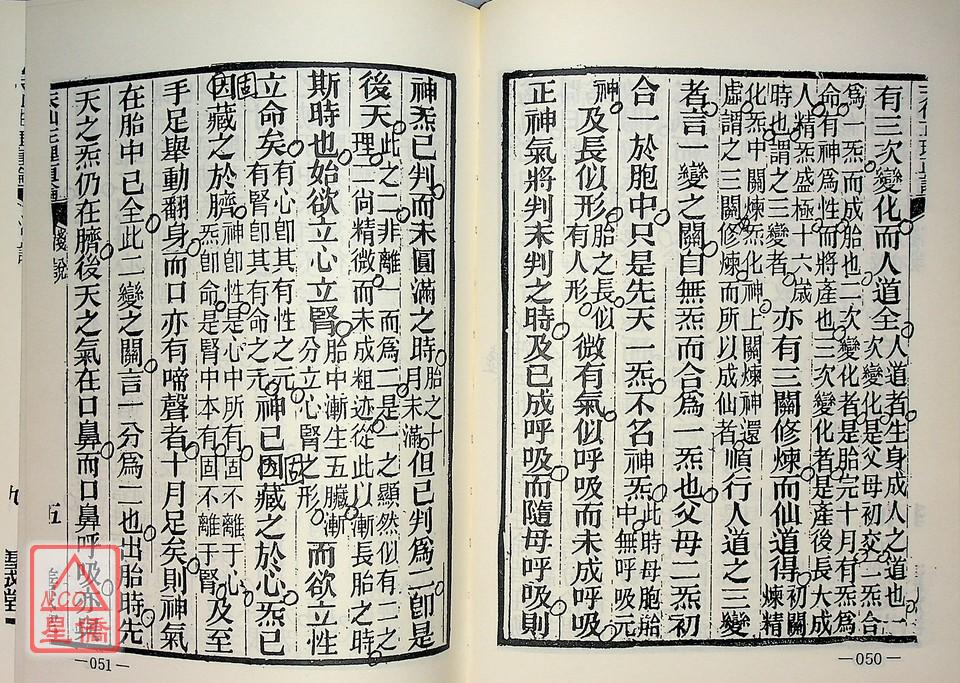 有三次變化而人道全
人道者生身成人之道也一
次變化是父母初交二炁合
為一炁而成胎也二次變化者是胎完十月有炁為
命有神為性而將產也三次變化者是產後長大成
人精炁盛極十六歲
時也謂之三變者
亦有三關修煉而仙道得
初關
煉精
化炁中關煉炁化神上關煉神還
虛謂之三關修煉而所以成仙者
順行人道之三變
者言一變之關自無炁而合為一炁也父母二炁初
合一於胞中只是先天一炁不名神炁
此時母胞胎
中無呼吸元
神
及長似形
胎之長似
有人形
微有氣似呼吸而未成呼吸
正神氣將判未判之時及已成呼吸而隨母呼吸則
—050—
神炁已判而未圓滿之時
胎之十
月未滿
但已判為二即是
後天
此之二非離一而為二是一之顯然似有二之
理二尚精微而未成粗迹從此以漸長胎之時
斯時也始欲立心立腎
胎中漸生五臟漸
分立心腎之形
而欲立性
立命矣
有心即其有性之元
有腎即其有命之元
神已因藏之於心炁已
固
因藏之於臍
固
神即性是心中所有固不離于心
炁即命是腎中本有固不離于腎
及至
手足舉動翻身而口亦有啼聲者十月足矣則神氣
在胎中已全此二變之關言一分為二也出胎時先
天之炁仍在臍後天之氣在口鼻而口鼻呼吸亦
淺說
五
—051—
NCC
星橋